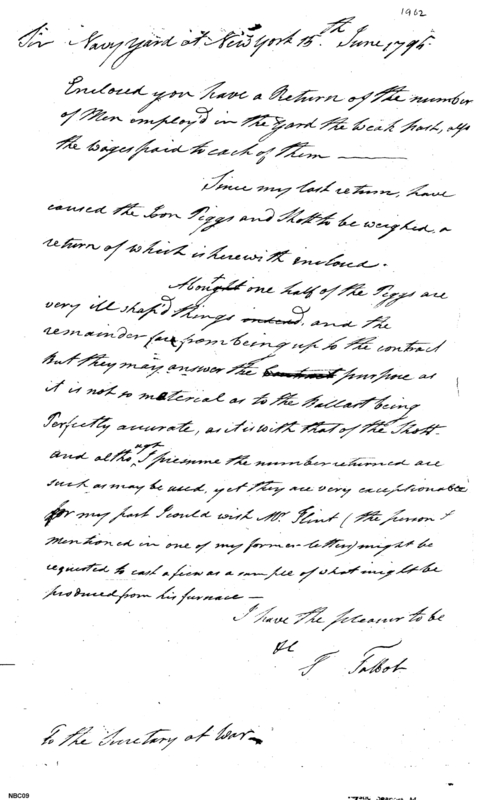 1962
Sir Navy Yard at New York 15th June 1795.
Enclosed you have a Return of the number
of Men employ'd in the Yard the Weak past, also
the wages paid to each of them
Since my last return, have
caused the Iron Piggs and Shott to be weighed, a
return of which is herewith enclosed.
About one half of the Piggs are
very ill shap'd things indeed, and the
remainder far from being up to the contract
But they may answer the Contract purpose as
it is not so material as to the Ballast being
Perfectly accurate, as it is with that of the Shott
and altho I presume the number returned are
such as may be used, yet they are very exceptionable
for my part I could wish Mr. Flint (the person
mentioned in one of my former letters) might be
requested to cash a few as a sample of what might be
produced from his furnace —
I have the pleasur to be
&c
T Talbot
To the Secretary at War
NBC09